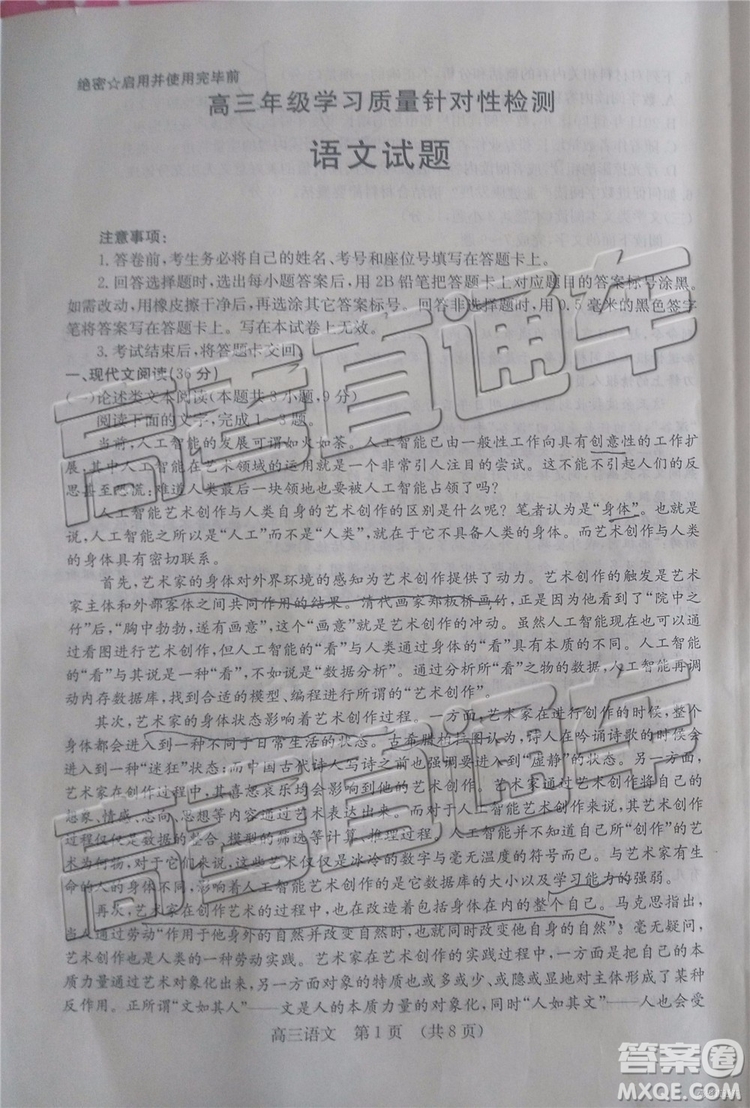 绝密☆启用并使用完毕前
高三年级学习质量针对性检测
语文试题
注意事项:
1.答卷前,考生务必将自己的姓名、考号和座位号填写在答题卡上。
2.回答选择题时,选出每小题答案后,用 2B 铅笔把答题卡上对应题目的答案标号涂黑。
如需改动,用橡皮擦干净后,再选涂其它答案标号。回答非选择题时,用 0.5 毫米的黑色签字
笔将答案写在答题卡上。写在本试卷上无效。
3.考试结束后,将答题卡交回。
一、现代文阅读(36 分)
(一)论述类文本阅读(本题共3小题,9 分)
阅读下面的文字,完成1~3题。
当前,人工智能的发展可谓如火如荼。人工智能已由一般性工作向具有创意性的工作扩
展,其中,人工智能在艺术领域的运用就是一个非常引人注目的尝试。这不能不引起人们的反
思甚至恐慌:难道人类最后一块领地也要被人工智能占领了吗?
人工智能艺术创作与人类自身的艺术创作的区别是什么?笔者认为是“身体”。也就是
说,人工智能之所以是“人工”而不是“人类”,就在于它不具备人类的身体。而艺术创作与人类
的身体具有密切联系。
首先,艺术家的身体对外界环境的感知为艺术创作提供了动力。艺术创作的触发是艺术
家主体和外部客体之间共同作用的结果。清代画家郑板桥画竹,正是因为看到了“院中之
竹”,“胸中勃勃,遂有画意”,这个“画意”就是艺术创作的冲动。虽然人工智能艺术创作也可以
通过看图进行艺术创作,但人工智能的“看”与人类通过身体的“看”具有本质的不同。人工智能
的“看”与其说是一种“看”,不如说是“数据分析”。通过分析所“看”之物的数据,人工智能再调
动内存数据库,找到合适的模型、编程进行所谓的“艺术创作”。
其次,艺术家的身体状态影响着艺术创作过程。一方面,艺术家在进行创作的时候,整个
身体都会进入到一种不同于日常生活的状态。古希腊柏拉图认为,诗人在吟诵诗歌的时候会进
入到一种“迷狂”状态;而中国古代诗人写诗之前则要进入到“虚静”的状态。另一方面,艺术
家在创作过程中,其喜怒哀乐均会参与创作并通过艺术表达出来。而艺术家正是将自己的想
象、情感、志向、思想等内容通过艺术表现出来的。而对人工智能艺术创作来说,其艺术创作
过程仅仅是数据的整合、模型的筛选等计算、推理过程,人工智能并不知道所“创作”的艺术
为何物,对于它们来说,这些所谓的“艺术”仅仅是冰冷的数字与毫无温度的符号而已。与艺术家
的身体不同,影响着人工智能艺术创作的是它数据库的大小以及学习能力的强弱。
再次,艺术家在艺术创作的过程中,也在改造着包括身体在内的整个自己。马克思指出,
当人通过劳动“作用于他身外的自然并改变自然时,也就同时改变他自身的自然”;毫无疑问,
艺术创作是人的一种特殊的劳动实践。艺术家在艺术创作的实践过程中,一方面是把人的本
质力量通过艺术对象化出来,另一方面对象的特质也或多或少、或隐或显地对主体造成了某种
反作用。正所谓“文如其人”——文是人的本质力量的对象化,同时“人如其文”——人也会受
高三语文 第1页 (共8页)
高考直通车
高考直通车
答案圈
MXQE.COM